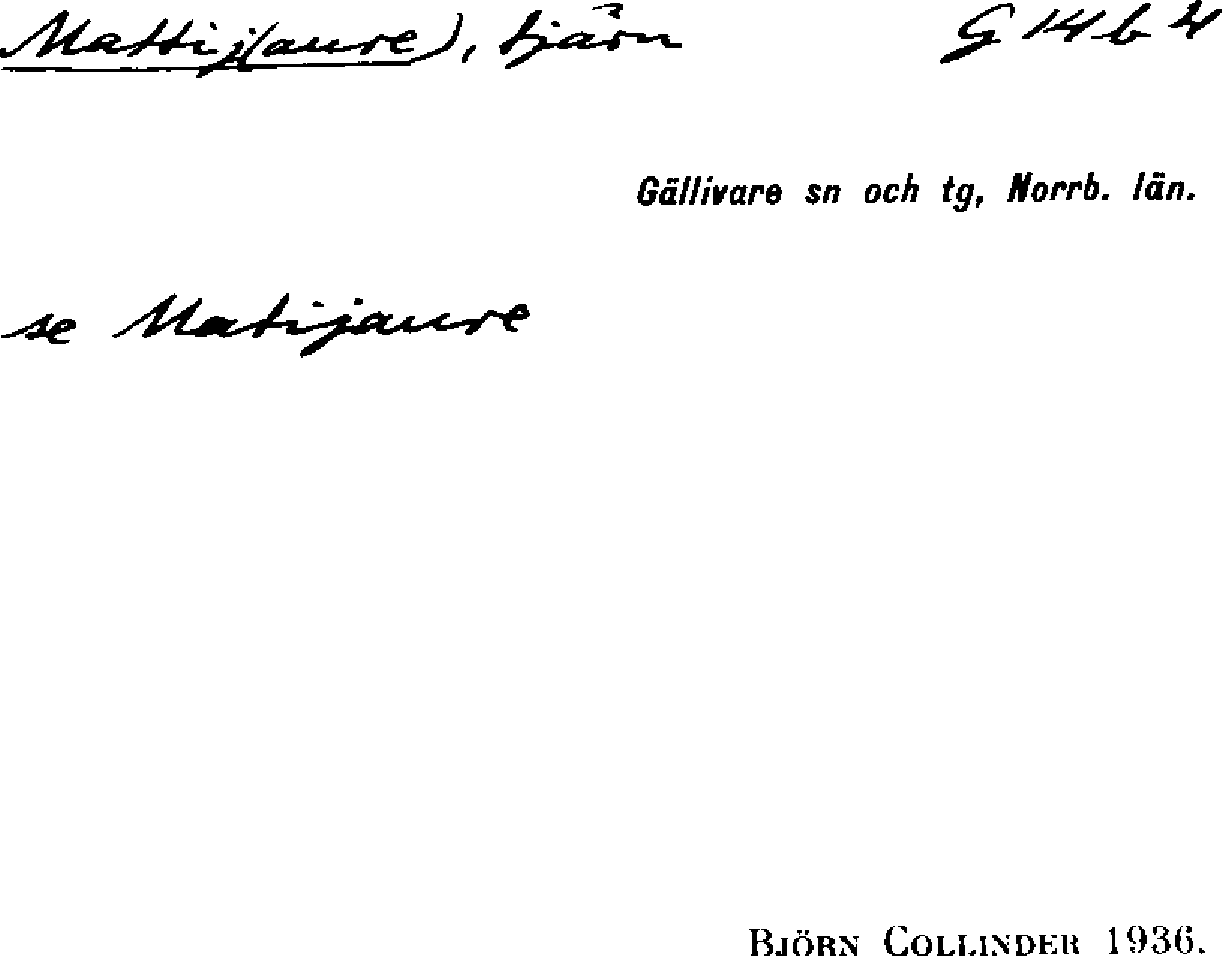 Mattij(aure), tjärn G 14 b 4
Gällivare sn och tg, Norrb. län.
se Matijaure
BJÖRN COLLINDER 1936.